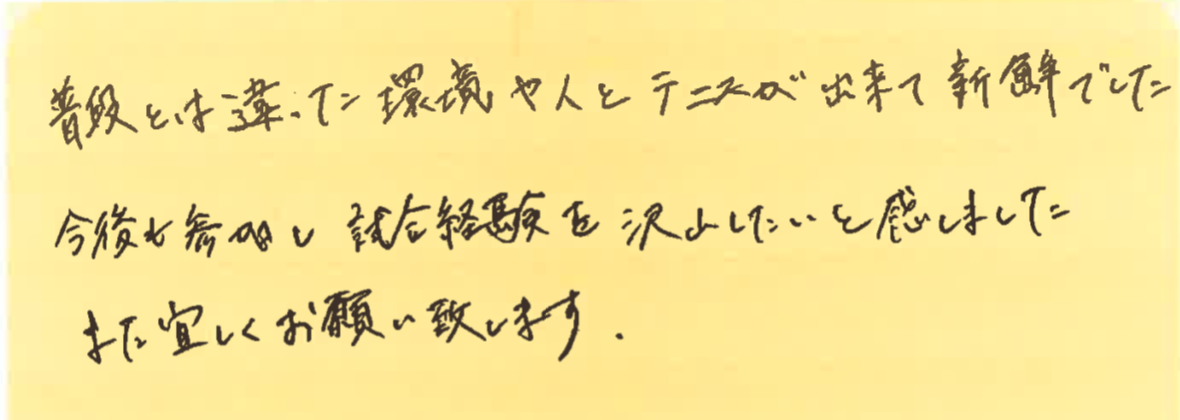 普段とは違った環境や人とテニスが出来て新鮮でした
今後も参加し試合経験を沢山したいと感じました
また宜しくお願い致します.